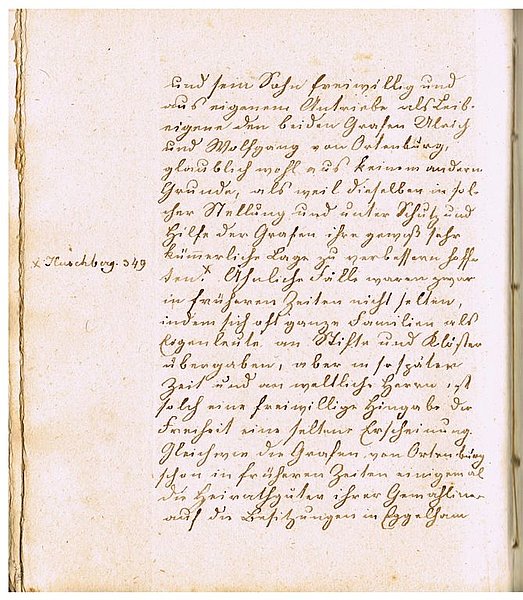 und sein Sohn freiwillig und
aus eigenem Antriebe als Leib-
eigene den beiden Grafen Ulrich
und Wolfgang von Ortenburg,
glaublich wohl aus keinem andern
Grunde, als weil dieselben in sol-
cher Stellung und unter Schutz und
Hilfe der Grafen ihre gewiß sehr
x Huschberg. 349
kümerliche Lage zu verbessern hoff-
ten.x Ähnliche Fälle waren zwar
in früheren Zeiten nicht selten,
indem sich oft ganze Familien als
Eigenleute an Stifte und Klöster
übergaben, aber in so später
Zeit und an weltliche Herrn ist
solch eine freiwillige Hingabe der
Freiheit eine seltene Erscheinung.
Gleichwie die Grafen von Ortenburg
schon in früheren Zeiten einigemal
die Heirathgüter ihrer Gemahlinen
auf die Besitzungen in Eggelham